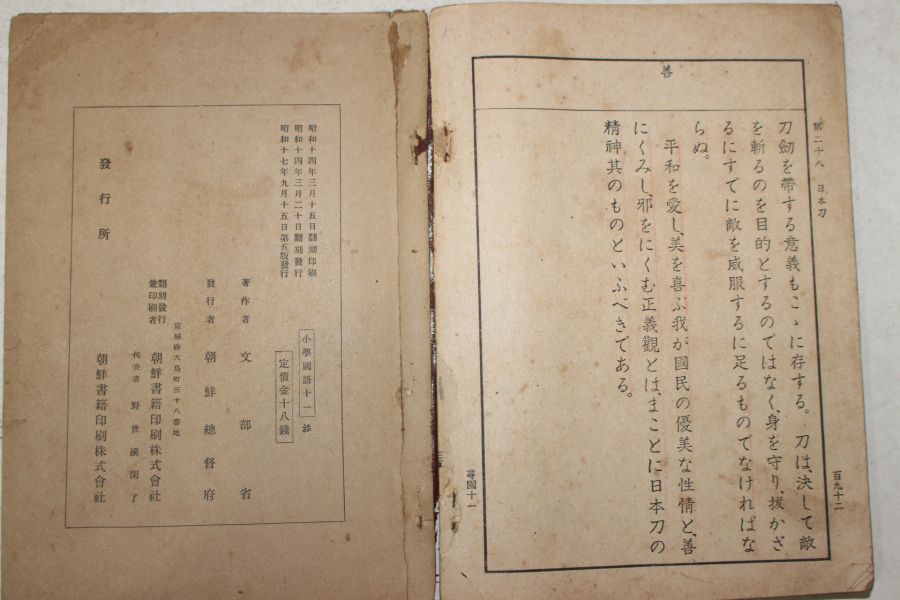 善
第二十八 日本刀
百九十二
刀劒を帶する意義もこゝに存する。刀は、決して敵
を斬るのを目的とするのではなく、身を守り、拔かざ
るにすでに敵を威服するに足るものでなければな
らぬ。
平和を愛し、美を喜ぶ我が國民の優美な性情と、善
にくみし、邪をにくむ正義觀とは、まことに日本刀の
精神其のものといふべきである。
尋國十一
昭和十四年三月十五日飜刻印刷
昭和十四年三月二十日飜刻發行
昭和十七年九月十五日第五版發行
小學國語十一
定價金十八錢
著作者 文部省
發行者 朝鮮總督府
京城府大島町三十八番地
飜刻發行
兼印刷者 朝鮮書籍印刷株式會社
代表者 野世溪閑了
發行所 朝鮮書籍印刷株式會社